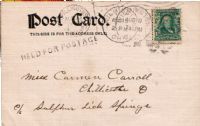 Post Card.
THIS SIDE IS FOR THE ADDRESS ONLY.
HELD FOR POSTAGE
Miss Carmen Carroll
Chillicothe O
c/o Sulphur Lick Springs